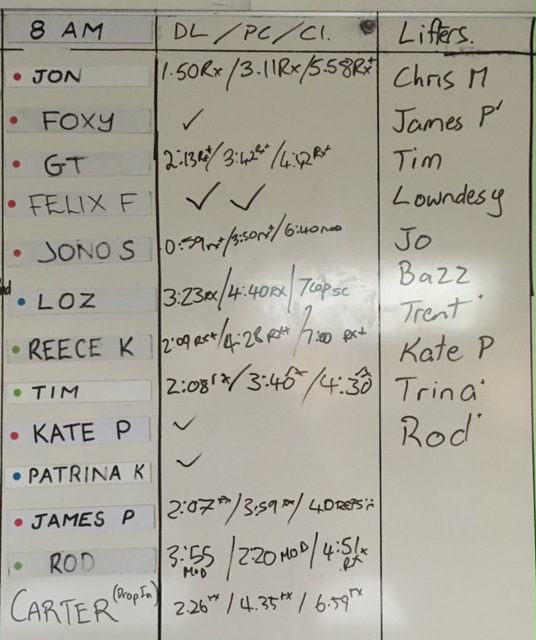 8 AM DL/PC/Cl. Lifters.
JON 1.50Rx/3.11Rx/5.58Rx+ Chris M
FOXY ✓ James P'
GT 2:13Rx+/3:42Rx+/4:42Rx+ Tim
FELIX F ✓ ✓ Lowndesy
JONO S 0:59rx+/3:50rx+/6:40mod Jo
Bazz
LOZ 3:23RX/4:40RX/ Trent
REECE K 2:09RX+/4:28RX+/7:00 RX+ Kate P
TIM 2:08rx/3:40rx/4:30rx Trina
KATE P ✓ Rod
PATRINA K ✓
JAMES P 2:07rx/3:59rx/40REPS
ROD 3:55 MOD/2:20 MOD/4:51 RX
CARTER (Drop In) 2.26rx/4.35rx/6.59rx